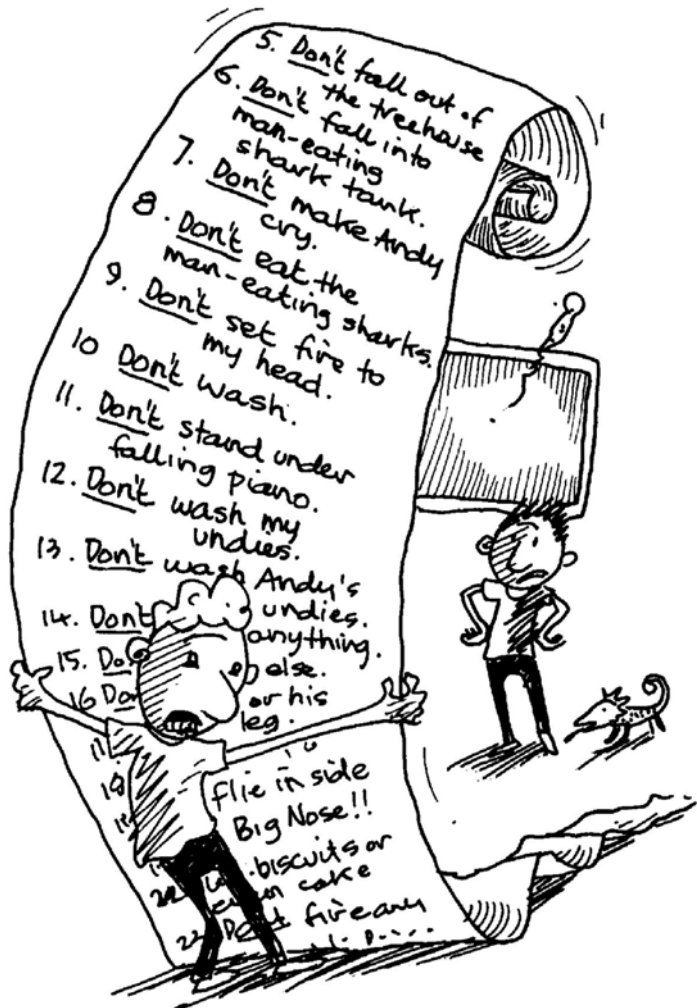 5. Don't fall out of
the treehouse
6. Don't fall into
man-eating
shark tank.
7. Don't make Andy
cry.
8. Don't eat the
man-eating sharks.
9. Don't set fire to
my head.
10 Don't wash.
11. Don't stand under
falling piano.
12. Don't wash my
undies.
13. Don't wash Andy's
undies.
14. Dont anything.
15. else.
16 or his
leg.
flie in side
Big Nose!!
biscuits or
cake
fire any